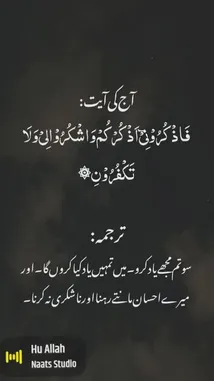 آج کی آیت:
فَاذْكُرُوْنِیْۤ اَذْكُرْكُمْ وَ اشْكُرُوْا لِیْ وَ لَا
تَكْفُرُوْنِ۠
ترجمہ:
سو تم مجھے یاد کرو۔ میں تمہیں یاد کیا کروں گا۔ اور
میرے احسان مانتے رہنا اور ناشکری نہ کرنا۔
Hu Allah
Naats Studio